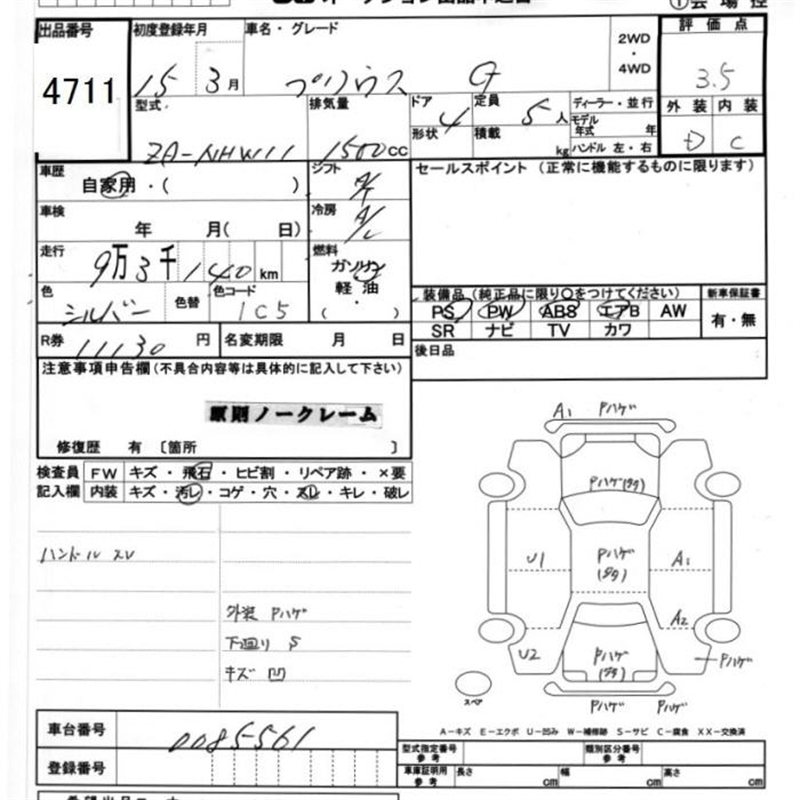 出品番号 初度登録年月 車名・グレード 2WD・4WD 評価点
4711 15 3月 プリウス G 3.5
型式 排気量 ドア形状 4 定員 5人 ディーラー・並行 外装 内装
ZA-NHW11 1500cc 積載 kg モデル年式 年 D C
ハンドル 左・右
車歴 自家用・( ) シフト A/T セールスポイント (正常に機能するものに限ります)
車検 年 月( 日) 冷房 A/C
走行 9万3千140km 燃料 ガソリン 軽油・( )
色 シルバー 色替 色コード 1C5 装備品 (純正品に限り○をつけてください) 新車保証書
PS PW ABS エアB AW 有・無
R券 11130円 名変期限 月 日 SR ナビ TV カワ
注意事項申告欄(不具合内容等は具体的に記入して下さい) 後日品
原則ノークレーム
修復歴 有 〔箇所 〕
検査員記入欄 FW キズ・飛石・ヒビ割・リペア跡・×要
内装 キズ・汚レ・コゲ・穴・スレ・キレ・破レ
A1 Pハゲ
Pハゲ(タタ)
ハンドル スレ
U1 Pハゲ(タタ) A1
外装 Pハゲ
A2
下廻り S
U2 Pハゲ(タタ) Pハゲ
キズ 凹
スペア Pハゲ Pハゲ
車台番号 0085561 A-キズ E-エクボ U-凹み W-補修跡 S-サビ C-腐食 XX-交換済
型式指定番号 参考 類別区分番号 参考
登録番号 車庫証明用 参考 長さ cm 幅 cm 高さ cm